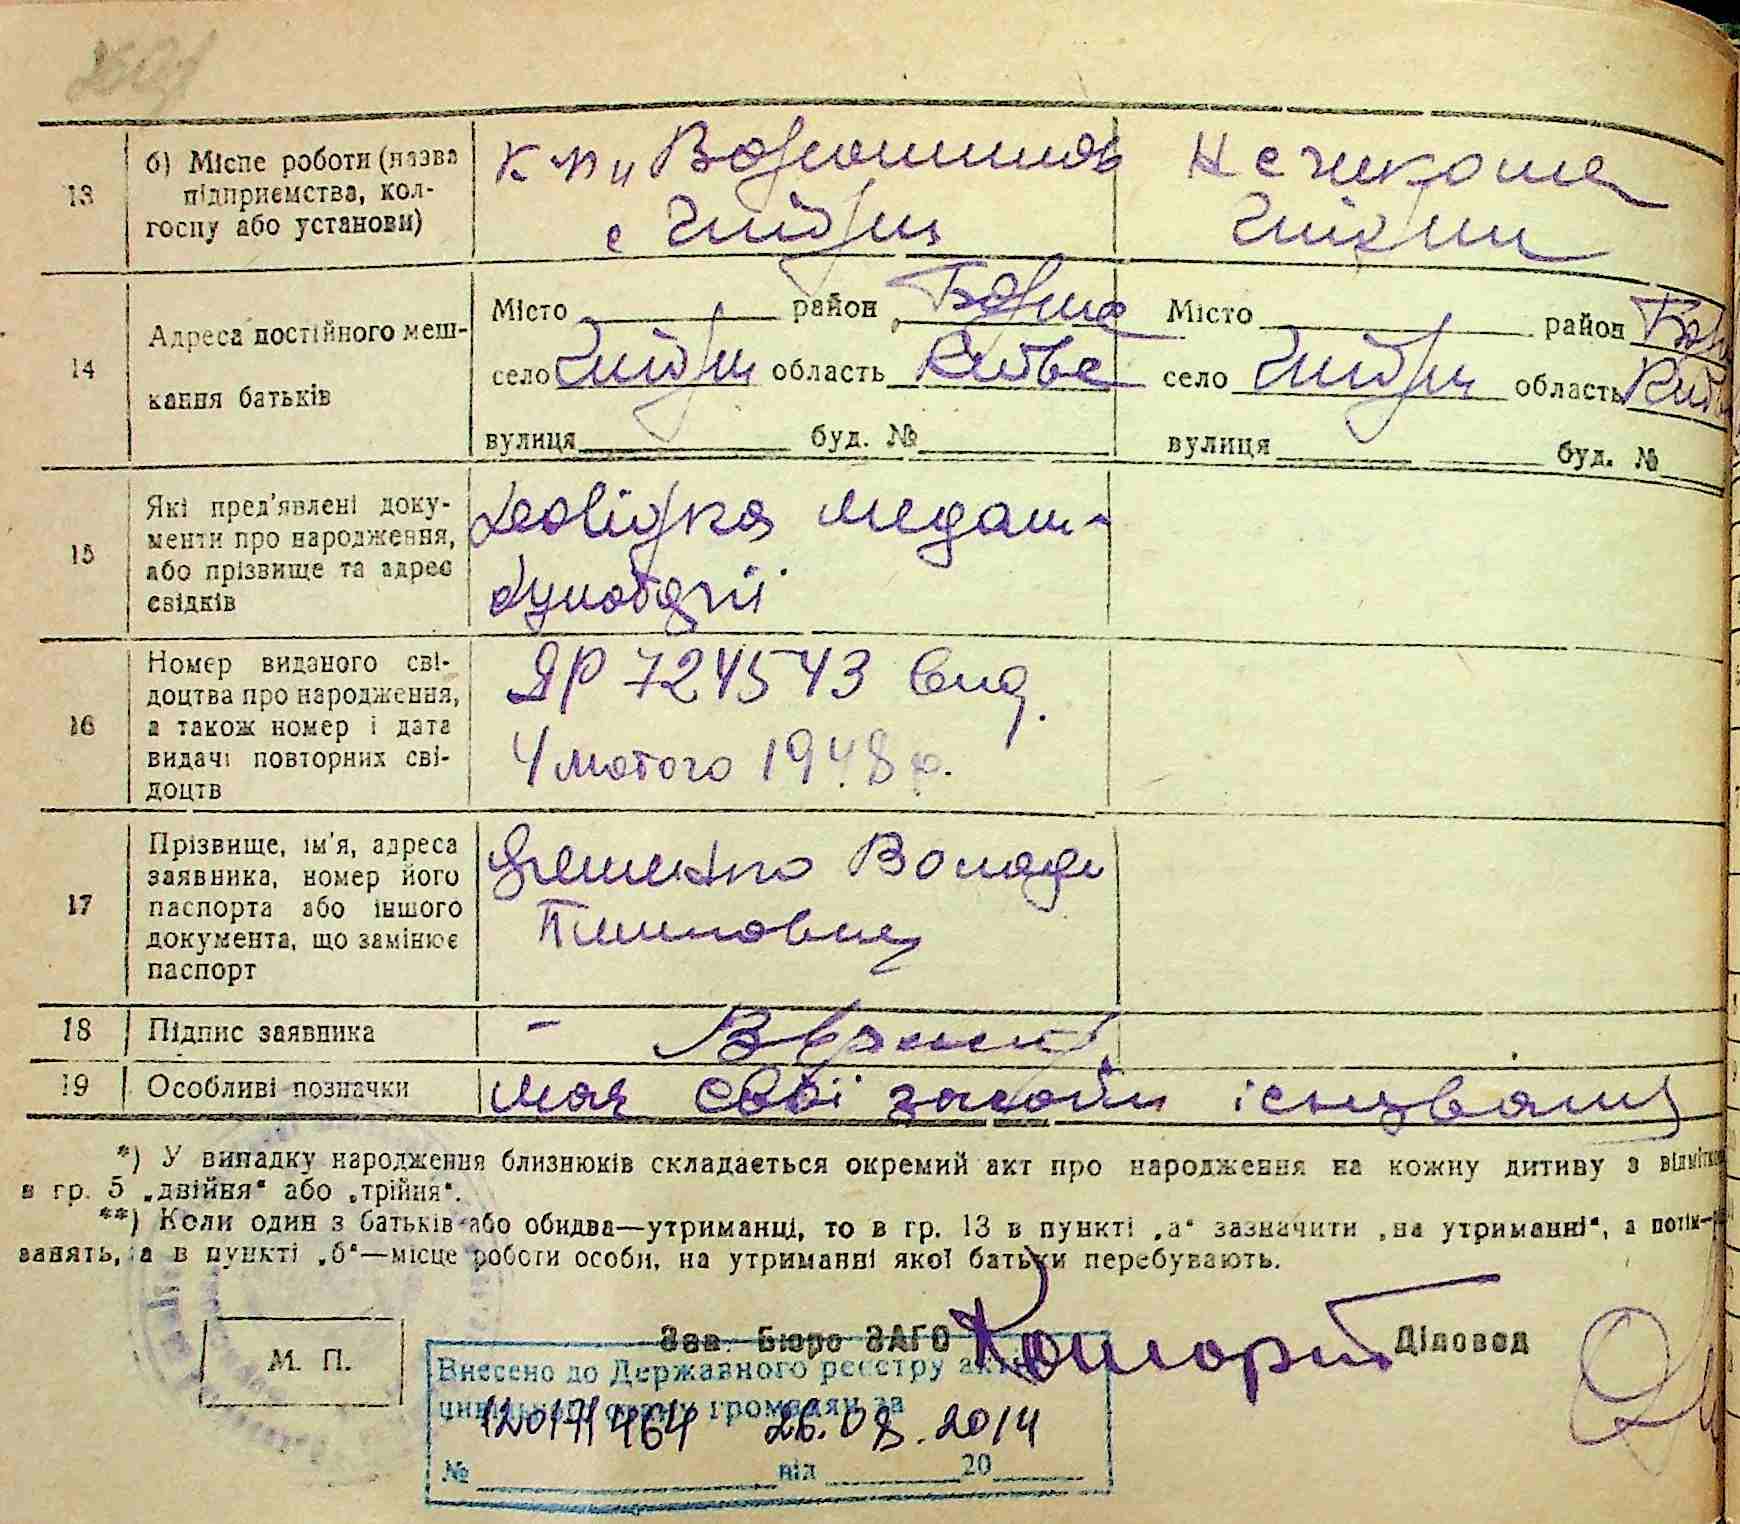 13
б) Місце роботи (назва
підприємства, кол-
госпу або установи)
с Гнідин
Гнідин
14
Адреса постійного меш-
кання батьків
Місто район
село Гнідин область Київс
вулиця буд. №
Місто район
село Гнідин область
вулиця буд. №
15
Які пред'явлені доку-
менти про народження,
або прізвище та адрес
свідків
Довідка медам-
булаторії
16
Номер виданого сві-
доцтва про народження,
а також номер і дата
видачі повторних сві-
доцтв
ЯР 724543 вид.
4 лютого 1948 р.
17
Прізвище, ім'я, адреса
заявника, номер його
паспорта або іншого
документа, що замінює
паспорт
18
Підпис заявника
-
19
Особливі позначки
має свої засоби існування
*) У випадку народження близнюків складається окремий акт про народження на кожну дитину з відміткою
в гр. 5 „двійня“ або „трійня“.
**) Коли один з батьків або обидва—утриманці, то в гр. 13 в пункті „а“ зазначити „на утриманні“, а потім—
занять, а в пункті „б“—місце роботи особи, на утриманні якої батьки перебувають.
М. П.
Зав. Бюро ЗАГС
Діловод
Внесено до Державного реєстру актів
цивільного стану громадян за
120171464 26.08.2014
№ від 20